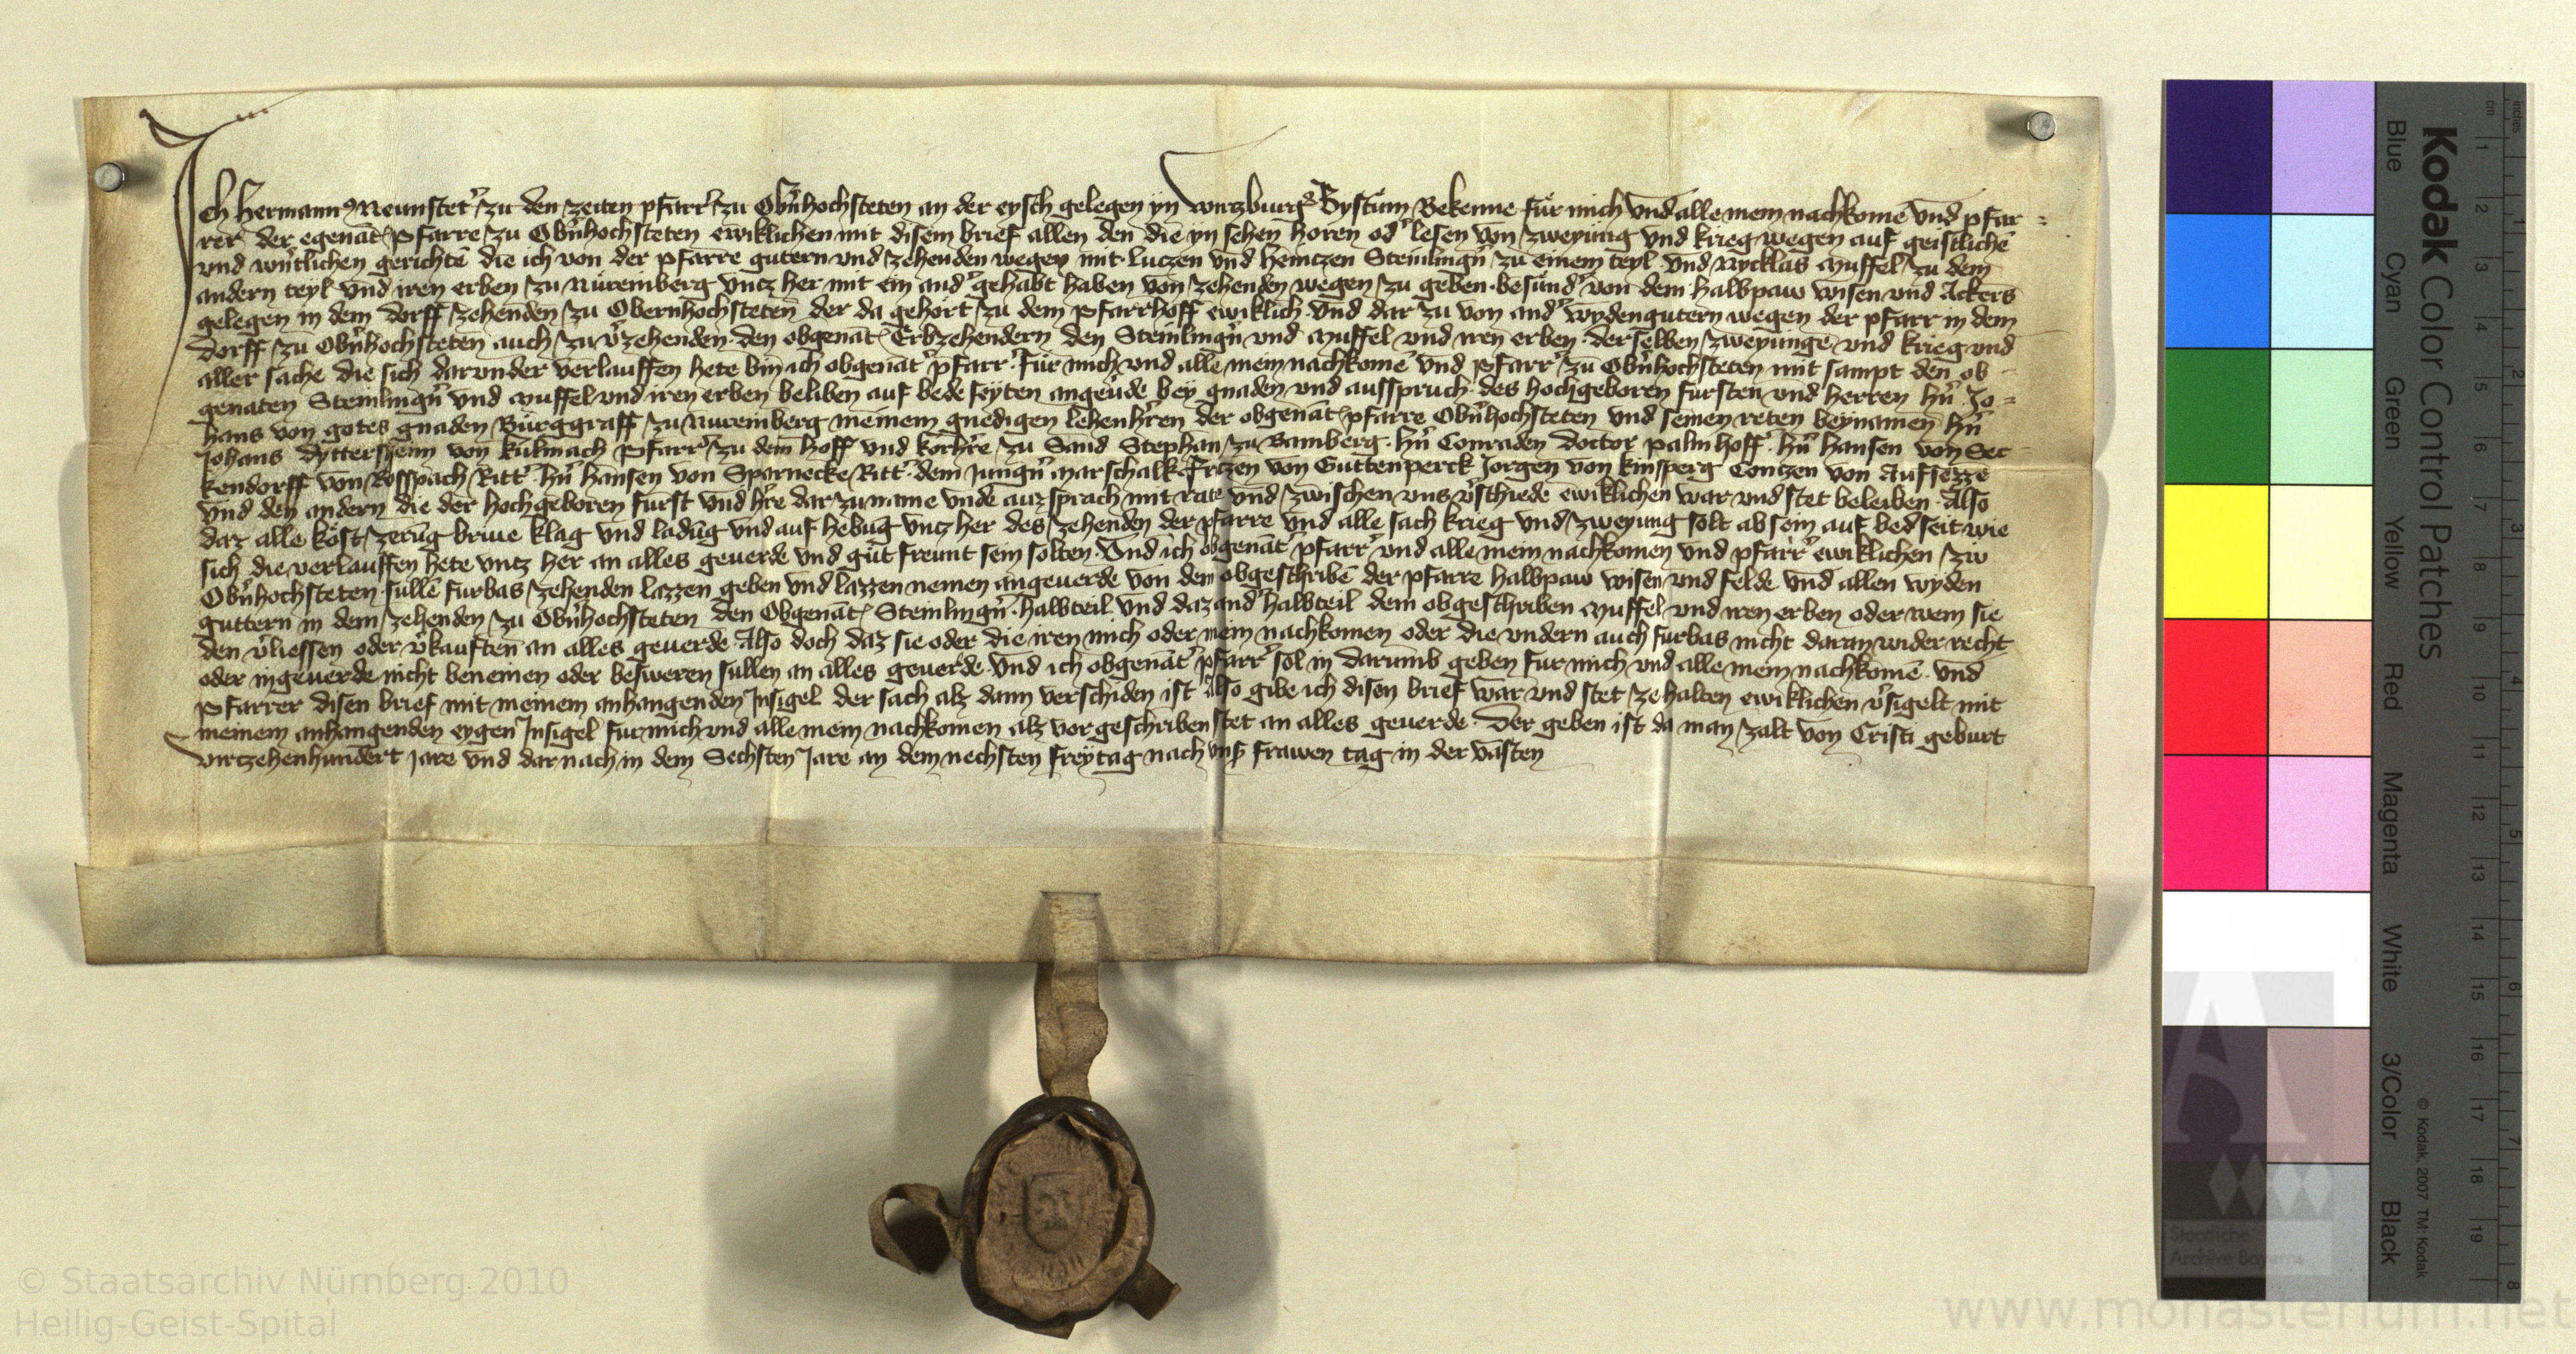 Ich Herman Neunsteter zu den zeiten pfarrer zu Obernhochsteten an der eysch gelegen yn wirtzburger Bystum Bekenne für mich und alle mein nachkome und pfar=
rer der egenat pfarre zu Obernhochsteten ewiklichen mit disem brief allen den die yn sehen horen oder lesen von zweyung und krieg wegen auf geistliche
und werltlichen gerichte die ich von der pfarre gutern und zehenden wegen mit Luczen und heinczen Steinlinger zu einem teyl und Nycklas muffel zu dem
andern teyl und iren erben zu Nüremberg vntz her mit ein ander gehabt haben von zehenden wegen zu geben besunder von dem halbpaw wisen und Ackers
gelegen in dem dorff zehenden zu Obernhochsteten der da gehort zu dem pfarrhoff ewiklich und dar zu von ander wydengutern wegen der pfarr in dem
dorff zu Obernhochsteten auch zu verzehenden den obgenat Erbzehendern den Steinlinger und muffel und iren erben derselben zweyunge und krieg und
aller sache die sich darunder verlauffen hete bin ich obgenat pfarrer für mich und alle mein nachkome und pfarrer zu Obernhochsteten mit sampt den ob-
genaten Steinlinger und muffel und iren erben beliben auf bede seyten angeude bey gnaden und ausspruch des hochgeboren fursten und herren hern Jo=
hans von gotes gnaden Burggraff zu Nuremberg meinem gnedigen lehenhren der obgenat pfarre Obernhochsteten und seinen reten beynamen hern
Johans dyttersheim von kulmach pfarrer zu dem hoff und korhre zu Sand Stephan zu Bamberg hern Conraden doctor palmhoff hern hansen von Sec
kendorff von Rosspach Ritter hern hansen von Sparnecke Ritter dem Jungern marschalk friczen von Guttenperck Jorgen von kinsperg Conczen von Aufsezze
und den andern die der hochgeboren furst und hre dar zu name unde auzsprach mit rate und zwischen uns verschiede ewiklichen war und stet beleiben Also
daz alle kost zerung briue klag und ladug und auf hebug vntz her des zehenden der pfarre und alle sach krieg und zweyung solt ab sein auf bed seit wie
sich die verlauffen hete vntz her an alles geuerde und gut freunt sein solten Und ich obgenat pfarrer und alle mein nachkomen und pfarrer ewiklichen zu
Obernhochsteten sulle furbas zehenden lazzen geben und lazzen nemen angeuerde von dem obgeschribe der pfarre halbpaw wisen und felde und allen wyden
guttern in dem zehenden zu Obernhochsteten den Obgenat Steinlinger halbteil und daz ander halbteil dem obgeschriben muffel und iren erben oder wem sie
den verliessen oder verkauften an alles geuerde Also doch daz sie oder die iren mich oder mein nachkomen oder die undern auch furbas nicht daran wider recht
oder ingeuerde nicht beneinen oder besweren sullen an alles geuerde Und ich obgenat pfarrer sol in darumb geben fur mich und alle mein nachkome und
pfarrer disen brief mit meinem anhangenden Insigel der sach alz dann verschiden ist Also gibe ich disen brief war und stet ze halten ewiklichen versigelt mit
meinem anhangenden eygen Insigel fur mich und alle mein nachkomen alz vorgeschriben stet an alles geuerde Der geben ist da man zalt von Cristi geburt
virtzehenhundert jare und darnach in dem Sechsten Jare an dem nechsten freytag nach unser frawen tag in der vasten
© Staatsarchiv Nürnberg 2010
Heilig-Geist-Spital
www.monasterium.net
Kodak Color Control Patches
Blue Cyan Green Yellow Red Magenta White 3/Color Black
© Kodak, 2007 TM: Kodak
inches 1 2 3 4 5 6 7 8
cm 1 2 3 4 5 6 7 8 9 10 11 12 13 14 15 16 17 18 19
Staatliche
Archive Bayerns